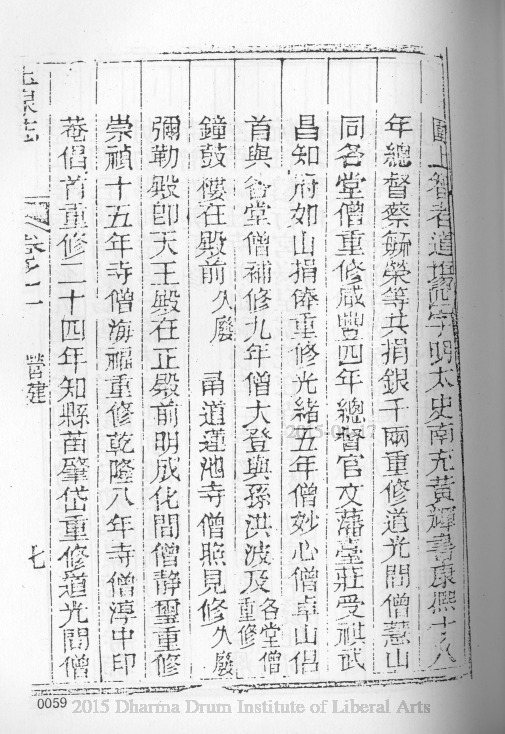 圓山智者道塲六字明太史南充黃輝書康熙十八
年總督蔡毓榮等共捐銀千兩重修道光間僧慧山
同各堂僧重修咸豐四年總督官文藩臺莊受祺武
昌知府如山捐俸重修光緒五年僧妙心僧卓山倡
首與各堂僧補修九年僧大登與孫洪波及各堂僧重修
鐘鼓樓在殿前久廢 甬道蓮池寺僧照見修久廢
彌勒殿卽天王殿在正殿前明成化間僧静璽重修
崇禎十五年寺僧海福重修乾隆八年寺僧淳中印
菴倡首重修二十四年知縣苗肇岱重修道光間僧
玉泉志
卷之二
營建
七
0059 2015 Dharma Drum Institute of Liberal Arts